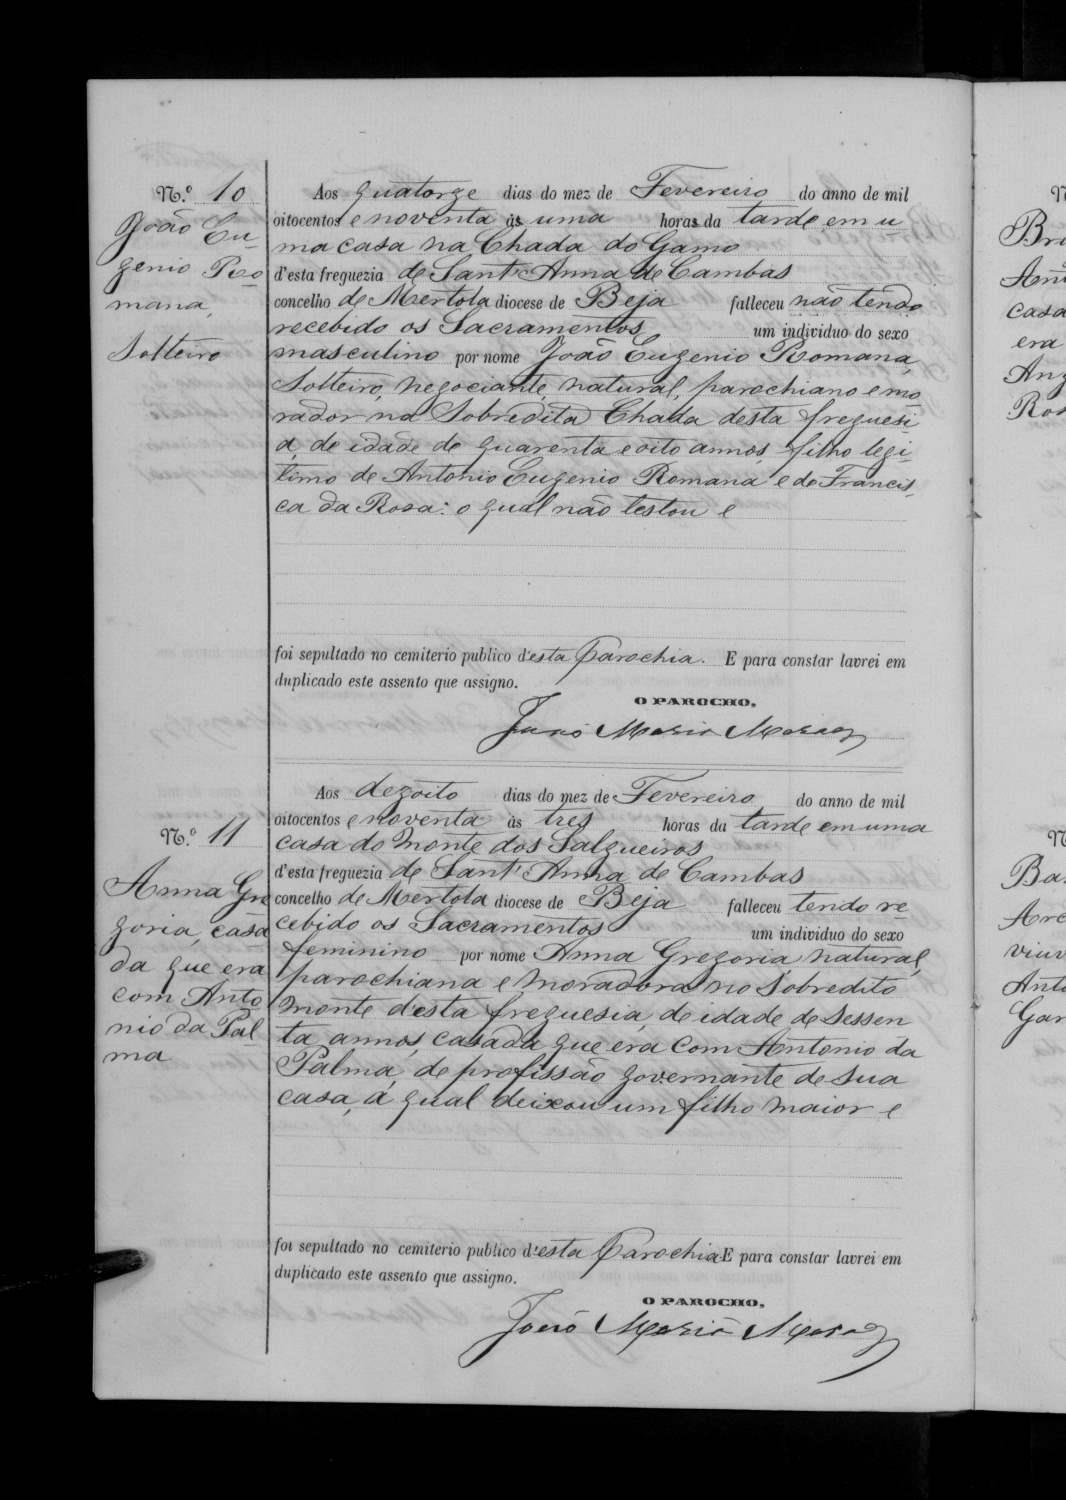 N.º 10
João Eu-
genio Ro-
mana,
Solteiro
Aos quatorze dias do mez de Fevereiro do anno de mil
oitocentos e noventa ás uma horas da tarde em u-
ma casa na Chada do Gamo
d'esta freguezia de Sant'Anna de Cambas
concelho de Mertola diocese de Beja falleceu não tendo
recebido os Sacramentos um individuo do sexo
masculino por nome João Eugenio Romana,
Solteiro, negociante, natural, parochiano e mo-
rador na Sobredita Chada desta freguesi-
a, de idade de quarenta e oito annos, filho legi-
timo de Antonio Eugenio Romana e de Francis-
ca da Rosa: o qual não testou e
foi sepultado no cemiterio publico d'esta Parochia. E para constar lavrei em
duplicado este assento que assigno.
O PAROCHO,
João Maria
N.º 11
Anna Gre
goria, casa
da que era
com Anto
nio da Pal
ma
Aos dezoito dias do mez de Fevereiro do anno de mil
oitocentos e noventa ás tres horas da tarde em uma
casa do Monte dos Salgueiros
d'esta freguezia de Sant'Anna de Cambas
concelho de Mertola diocese de Beja falleceu tendo re-
cebido os Sacramentos um individuo do sexo
feminino por nome Anna Gregoria, natural,
parochiana e moradora no Sobredito
Monte desta freguesia, de idade de Sessen
ta annos, casada que era com Antonio da
Palma, de profissão governante de Sua
casa, á qual deixou um filho maior e
foi sepultado no cemiterio publico d'esta Parochia E para constar lavrei em
duplicado este assento que assigno.
O PAROCHO,
João Maria
N
Bri
casa
era
Ang
Ros
N
Ba
viuv
Anto
Gar